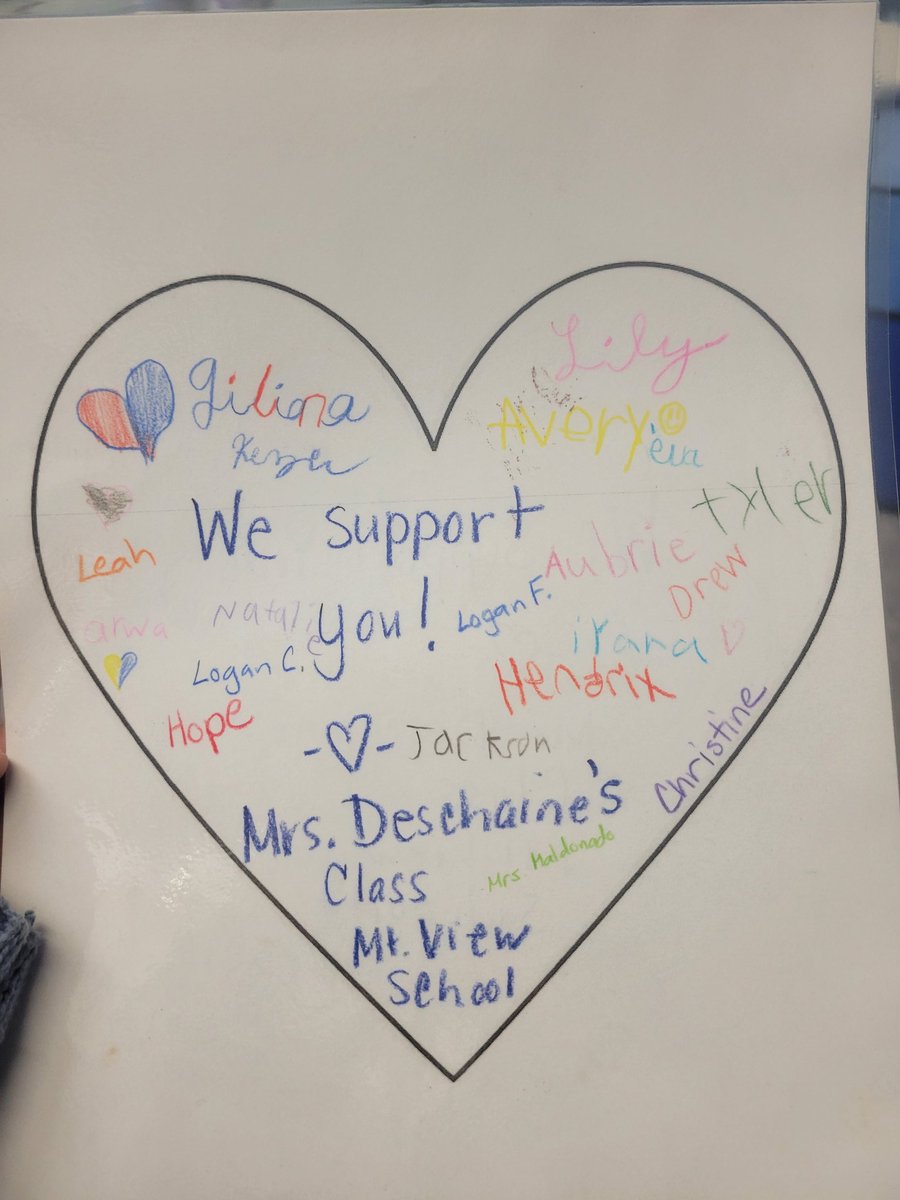 Lily
Giliana
Avery
eva
We support
tyler
Leah
Aubrie
Drew
arwa
Natalie
you!
Logan F.
irana
Logan C.
Hendrix
Hope
Jackson
Christine
Mrs. Deschaine's
Mrs Maldonado
Class
Mt. View
School